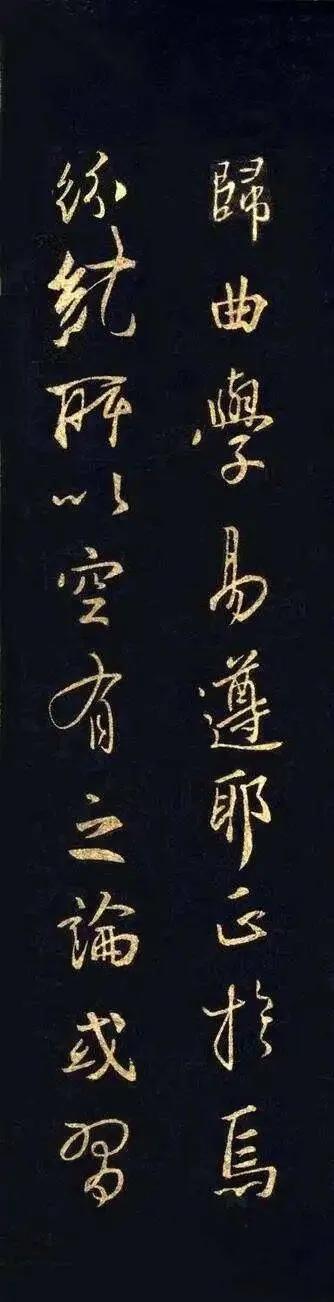 歸曲學易遵耶正於焉
紛糺所以空有之論或習